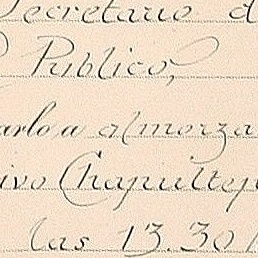 Secretario d
Publico,
arlo a almorza
ivo Chapultep
las 13.30 h